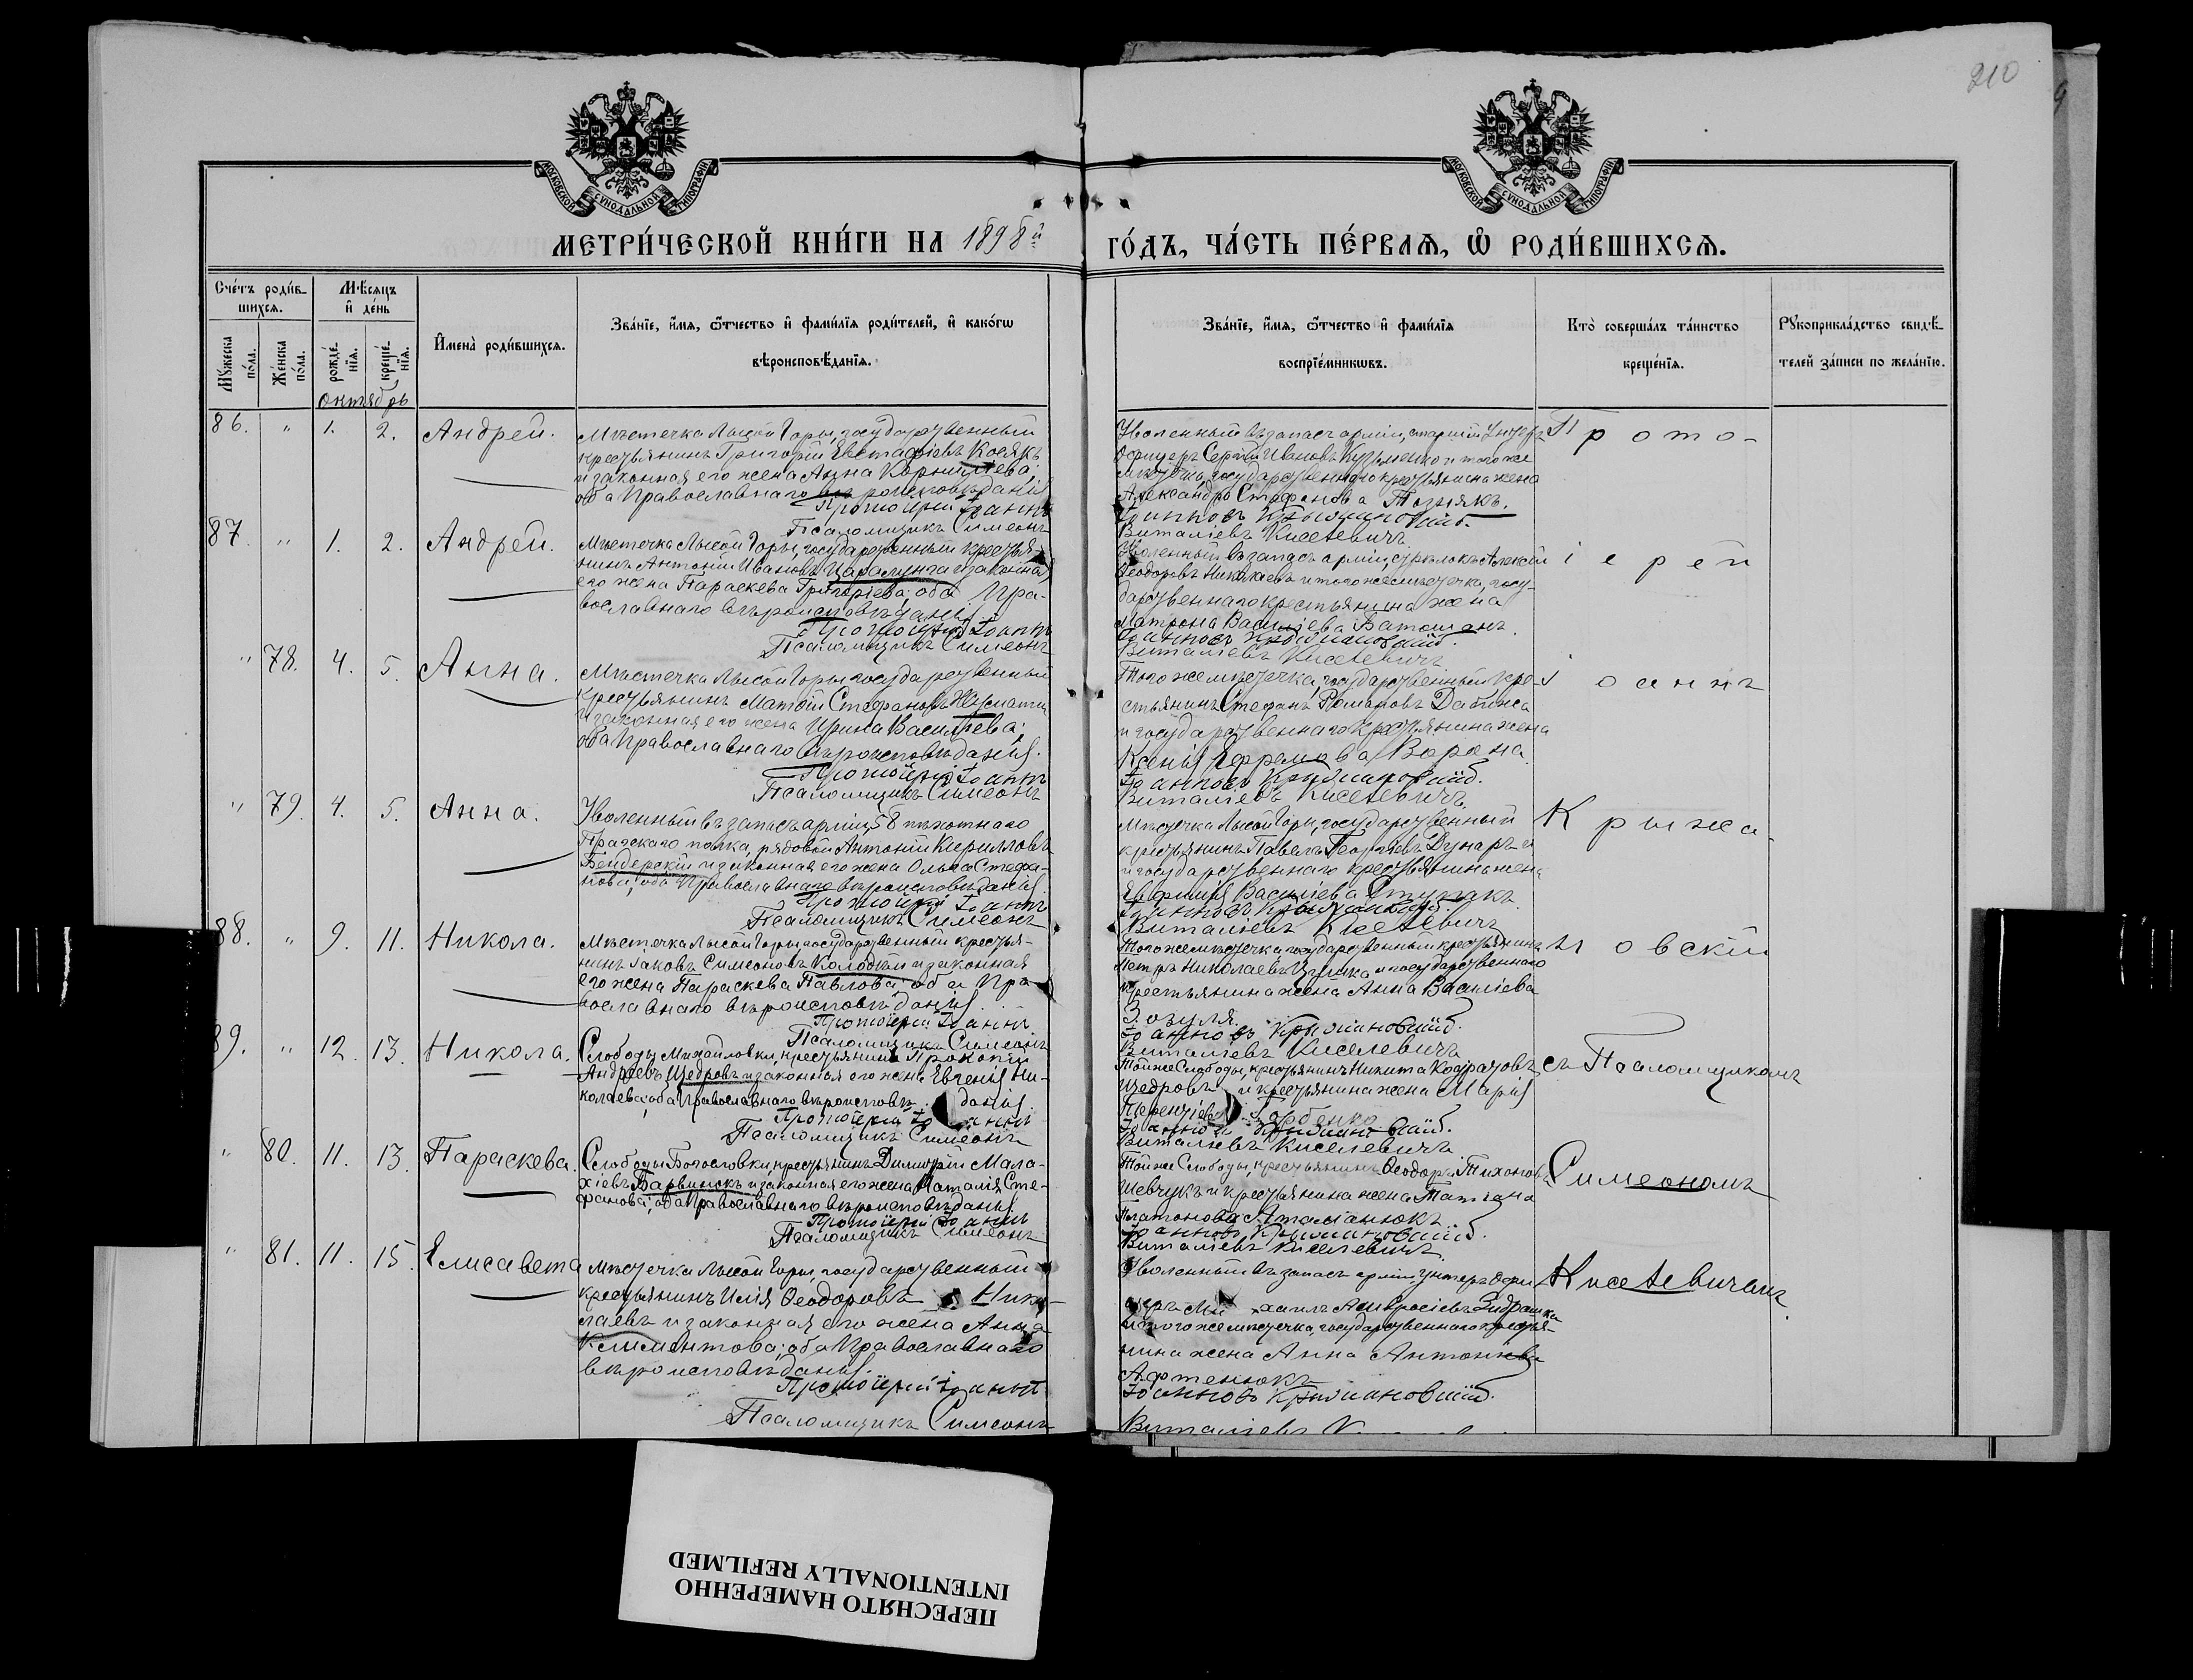 210
МОСКОВСКОЙ СѴНОДАЛЬНОЙ ТИПОГРАФІИ
МОСКОВСКОЙ СѴНОДАЛЬНОЙ ТИПОГРАФІИ
МЕТРИ́ЧЕСКОЙ КНИ́ГИ НА 1898й
ГО́ДЪ, ЧА́СТЬ ПЕ́РВАѦ, Ѡ҆ РОДИ́ВШИХСѦ.
Сче́тъ роди́в-
шихсѧ.
Мꙋ́жеска по́ла.
Же́нска по́ла.
Мѣ́сѧцъ
и҆ де́нь
рожде́-
нїѧ.
креще́-
нїѧ.
Октябрь
И҆мена̀ роди́вшихсѧ.
Зва́нїе, и҆́мѧ, ѻ҆́тчество и҆ фами́лїѧ роди́телей, и҆ како́гѡ
вѣроисповѣ́данїѧ.
Зва́нїе, и҆́мѧ, ѻ҆́тчество и҆ фами́лїѧ
воспрїе́мникѡвъ.
Кто̀ соверша́лъ та́инство
креще́нїѧ.
Рꙋкоприкла́дство свидѣ́-
телей за́писи по жела́нїю.
86. " 1. 2. Андрей.
Мѣстечка Лысой Горы, государственный
крестьянинъ Григорій Евстафіевъ Косякъ
и законная его жена Анна Корнилiева;
оба Православнаго вѣроисповѣданія
Протоіерей Іоаннъ
Псаломщикъ Симеонъ
Уволенный въ запасъ арміи, старшій унтеръ
Офицеръ Сергій Ивановъ Кузьменко и того же
мѣстечка, государственнаго крестьянина жена
Александра Стефанова Позняк.
Іоанновъ Крыжановскій.
Виталіевъ Киселевичъ
87. " 1. 2. Андрей.
Мѣстечка Лысой Горы, государственный крестья-
нинъ Антоній Ивановъ Царалунга и законная
его жена Параскева Григоріева; оба Пра-
вославнаго вѣроисповѣданія
Протоіерей Іоаннъ
Псаломщикъ Симеонъ
Уволенный въ запасъ арміи, стрѣлокъ Алексій
Феодоровъ Николаевъ и того же мѣстечка, госу-
дарственнаго крестьянина жена
Матрона Василіева Ватаманъ.
Іоанновъ Крыжановскій.
Виталіевъ Киселевичъ
" 78. 4. 5. Анна.
Мѣстечка Лысой Горы государственный
крестьянинъ Матѳій Стефановъ
и законная его жена Ирина Василіева;
оба Православнаго вѣроисповѣданія.
Протоіерей Іоаннъ
Псаломщикъ Симеонъ
Того же мѣстечка, государственный кре-
стьянинъ Стефанъ Романовъ Дабижа
и государственнаго крестьянина жена
Ксенія Ефремова Ворона.
Іоанновъ Крыжановскій.
Виталіевъ Киселевичъ
" 79. 4. 5. Анна.
Уволенный въ запасъ арміи, 58 пѣхотнаго
Прагскаго полка, рядовой Антоній Кирилловъ
Бендерскій и законная его жена Ольга Стефа-
нова; оба Православнаго вѣроисповѣданія.
Протоіерей Іоаннъ
Псаломщикъ Симеонъ
Мѣстечка Лысой Горы, государственный
крестьянинъ Павелъ Георгіевъ Дунаръ
и государственнаго крестьянина жена
Евфимія Василіева
Іоанновъ Крыжановскій.
Виталіевъ Киселевичъ
88. " 9. 11. Никола.
Мѣстечка Лысой Горы государственный крестья-
нинъ Іаковъ Симеоновъ Колодѣй и законная
его жена Параскева Павлова; оба Пра-
вославнаго вѣроисповѣданія.
Протоіерей Іоаннъ
Псаломщикъ Симеонъ
Того же мѣстечка, государственный крестьянинъ
Петръ Николаевъ и государственнаго
крестьянина жена Анна Василіева
Зозуля.
Іоанновъ Крыжановскій.
Виталіевъ Киселевичъ
89. " 12. 13. Никола.
Слободы Михайловки, крестьянинъ Прокопій
Андреевъ Щедровъ и законная его жена Евгенія Ни-
колаева; оба Православнаго вѣроисповѣданія
Протоіерей Іоаннъ
Псаломщикъ Симеонъ
Той же Слободы, крестьянинъ Никита Кодратовъ
Щедровъ и крестьянина жена Марія
Терентіева Горбенко
Іоанновъ Крыжановскій.
Виталіевъ Киселевичъ
" 80. 11. 13. Параскева.
Слободы Богословки, крестьянинъ Димитрій Мала-
хіевъ Барвинскъ и законная его жена Наталія Сте-
фанова; оба Православнаго вѣроисповѣданія
Протоіерей Іоаннъ
Псаломщикъ Симеонъ
Той же Слободы, крестьянинъ Феодоръ Тихоновъ
Шевчукъ и крестьянина жена Татіана
Платонова Атаманюкъ.
Іоанновъ Крыжановскій.
Виталіевъ Киселевичъ
" 81. 11. 15. Елисавета
Мѣстечка Лысой Горы, государственный
крестьянинъ Илія Феодоровъ Нико-
лаевъ и законная его жена Анна
Климентова; оба Православнаго
вѣроисповѣданія.
Протоіерей Іоаннъ
Псаломщикъ Симеонъ
Уволенный въ запасъ арміи, унтеръ Офи-
церъ Михаилъ Амвросіевъ
и того же мѣстечка, государственнаго крестья-
нина жена Анна Антоніева
Афтенюкъ
Іоанновъ Крыжановскій.
Виталіевъ
Прото-
іерей
Іоаннъ
Крыжа-
новскій
съ Псаломщикомъ
Симеономъ
Киселевичемъ
ПЕРЕСНЯТО НАМЕРЕННО
INTENTIONALLY REFILMED